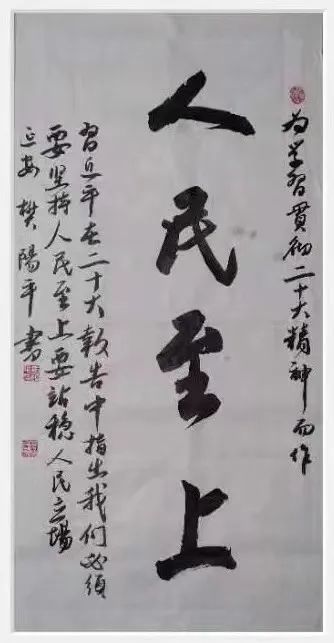 为学习贯彻二十大精神而作
人民至上
習近平在二十大報告中指出我们必须
要坚持人民至上要站稳人民立場
延安樊陽平書